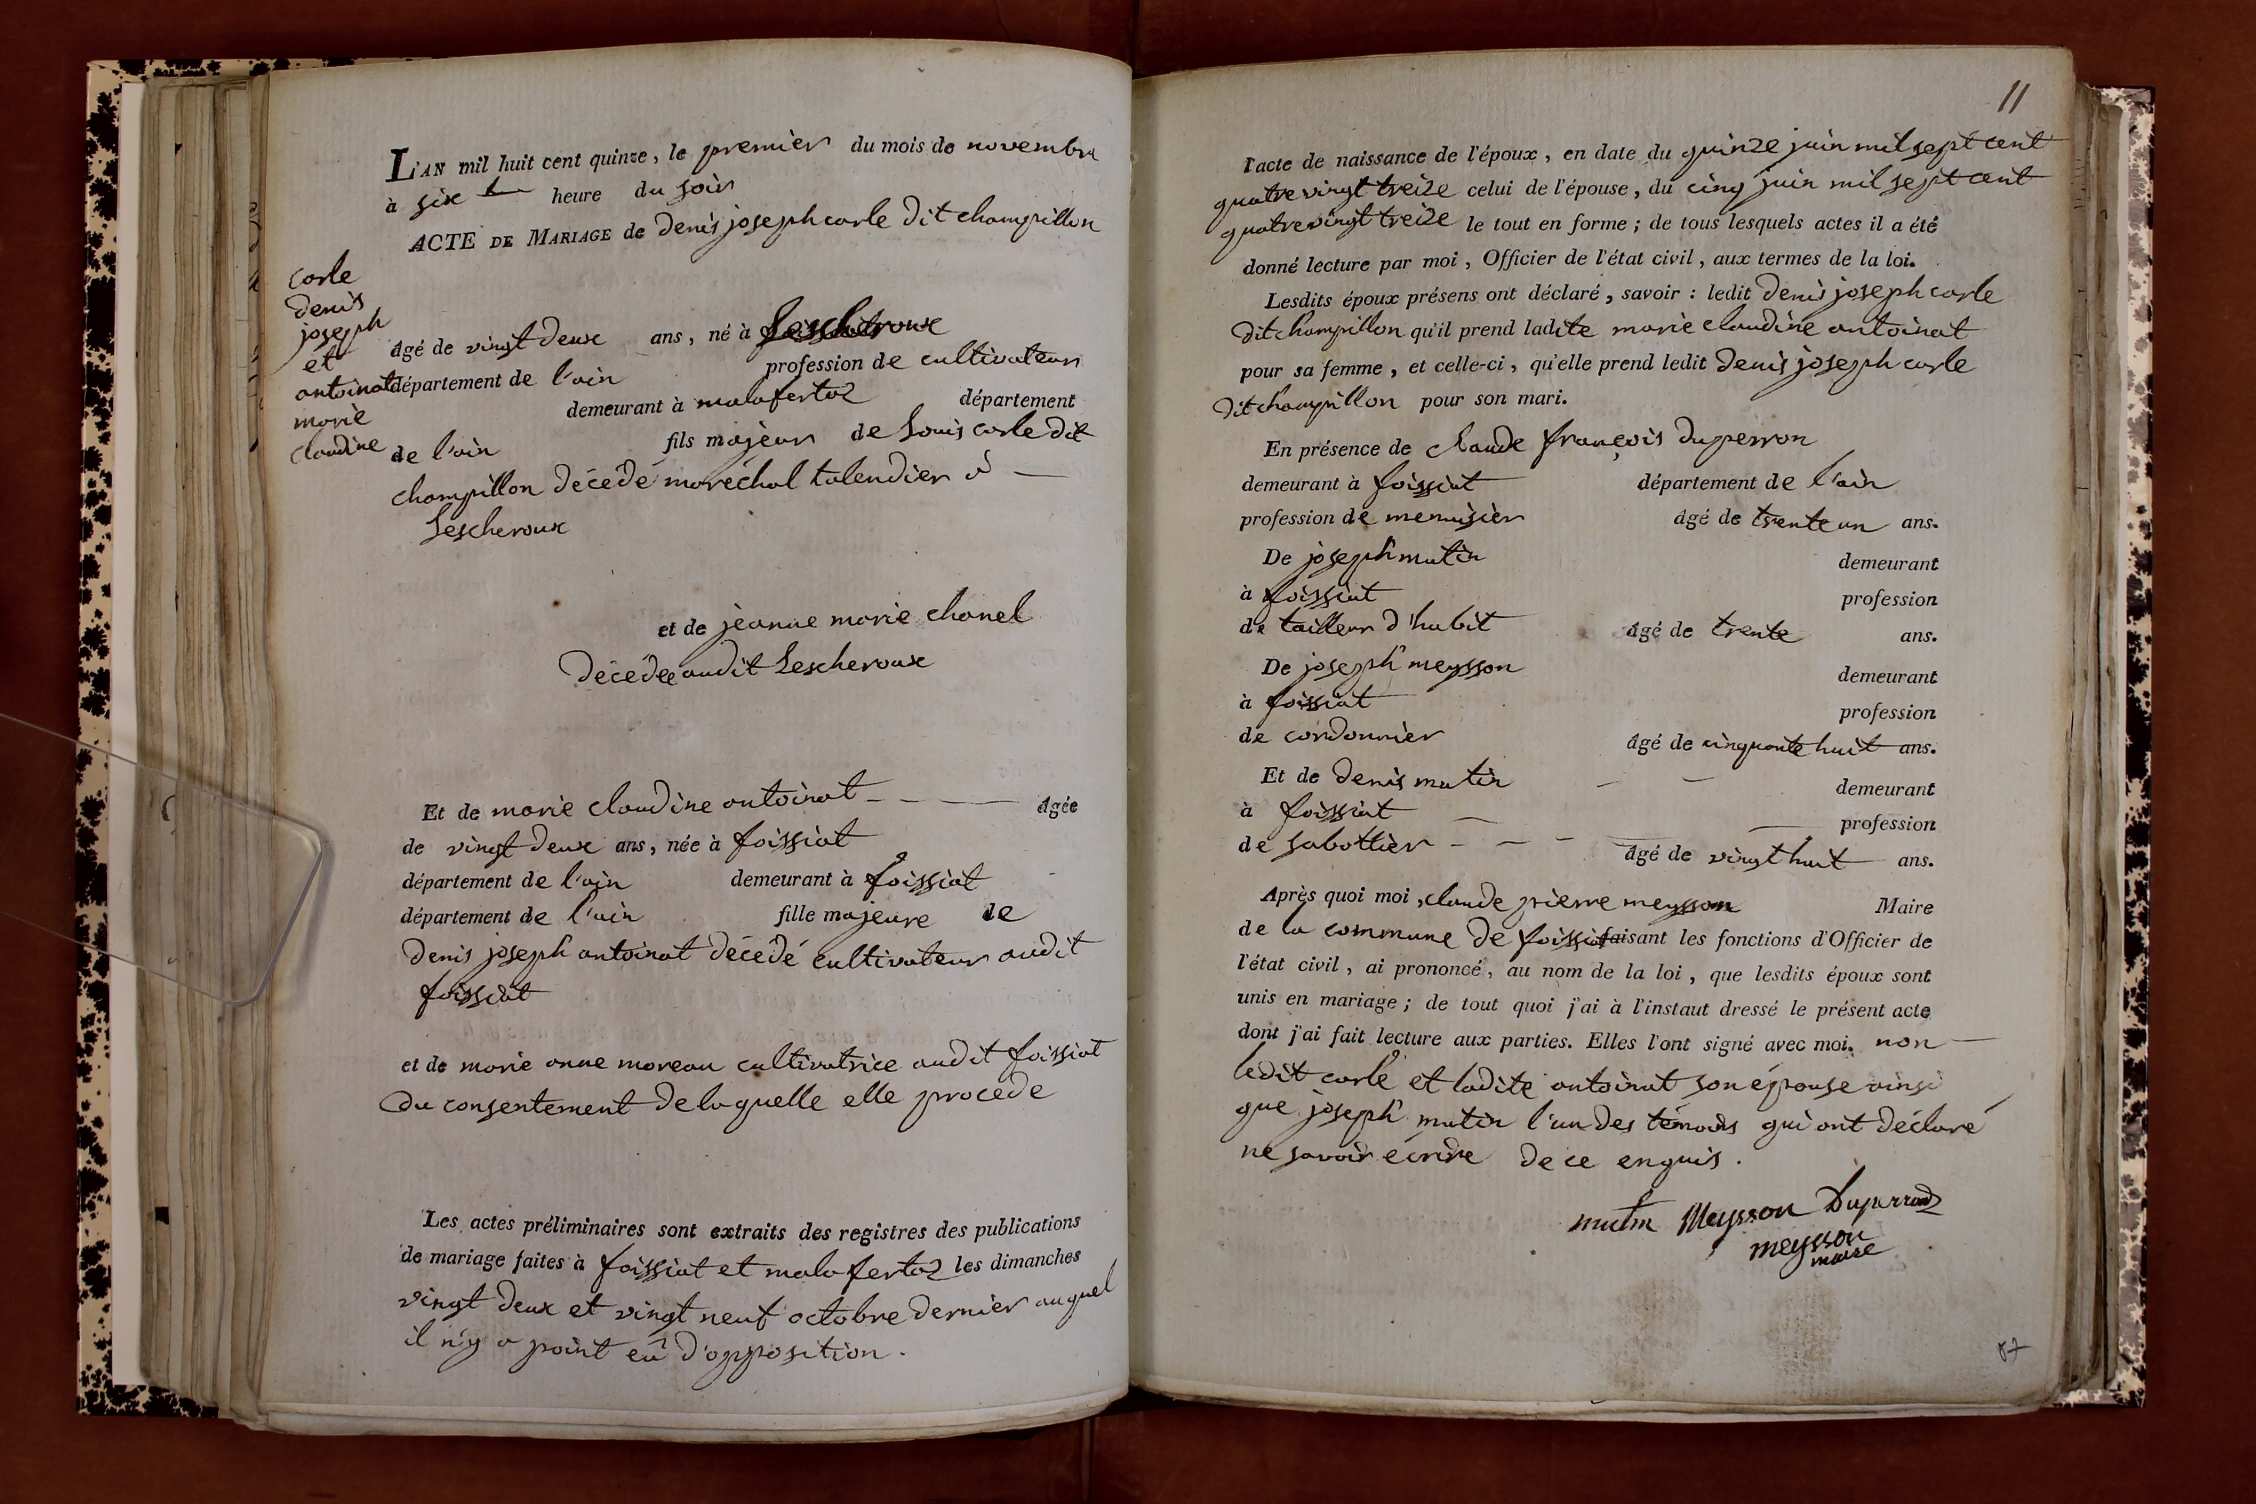 L'AN mil huit cent quinze, le premier du mois de novembre
à six heure du soir
ACTE DE MARIAGE de denis joseph carle dit champillon
carle
denis
joseph
et
antoinat
marie
claudine
âgé de vingt deux ans, né à Lescheroux
département de l'ain profession de cultivateur
demeurant à malafertaz département
de l'ain fils majeur de Louis carle dit
champillon décédé maréchal talendier à
Lescheroux
et de jeanne marie chanel
décédée audit Lescheroux
Et de marie claudine antoinat âgée
de vingt deux ans, née à foissiat
département de l'ain demeurant à foissiat
département de l'ain fille majeure de
denis joseph antoinat décédé cultivateur audit
foissiat
et de marie anne moreau cultivatrice audit foissiat
du consentement de laquelle elle procede
Les actes préliminaires sont extraits des registres des publications
de mariage faites à foissiat et malafertaz les dimanches
vingt deux et vingt neuf octobre dernier auquel
il n'y a point eû d'opposition.
11
l'acte de naissance de l'époux, en date du quinze juin mil sept cent
quatre vingt treize celui de l'épouse, du cinq juin mil sept cent
quatre vingt treize le tout en forme; de tous lesquels actes il a été
donné lecture par moi, Officier de l'état civil, aux termes de la loi.
Lesdits époux présens ont déclaré, savoir : ledit denis joseph carle
dit champillon qu'il prend ladite marie claudine antoinat
pour sa femme, et celle-ci, qu'elle prend ledit denis joseph carle
dit champillon pour son mari.
En présence de claude françois duperron
demeurant à foissiat département de l'ain
profession de menuisier âgé de trente un ans.
De joseph mutin demeurant
à foissiat profession
de tailleur d'habit âgé de trente ans.
De joseph meysson demeurant
à foissiat profession
de cordonnier âgé de cinquante huit ans.
Et de denis mutin demeurant
à foissiat profession
de sabottier âgé de vingt huit ans.
Après quoi moi, claude pierre meysson Maire
de la commune de foissiat faisant les fonctions d'Officier de
l'état civil, ai prononcé, au nom de la loi, que lesdits époux sont
unis en mariage; de tout quoi j'ai à l'instaut dressé le présent acte
dont j'ai fait lecture aux parties. Elles l'ont signé avec moi. non
ledit carle et ladite antoinat son épouse ainsi
que joseph mutin l'un des témoins qui ont déclaré
ne savoir écrire de ce enquis.
mutin Meysson Duperron
meysson
maire